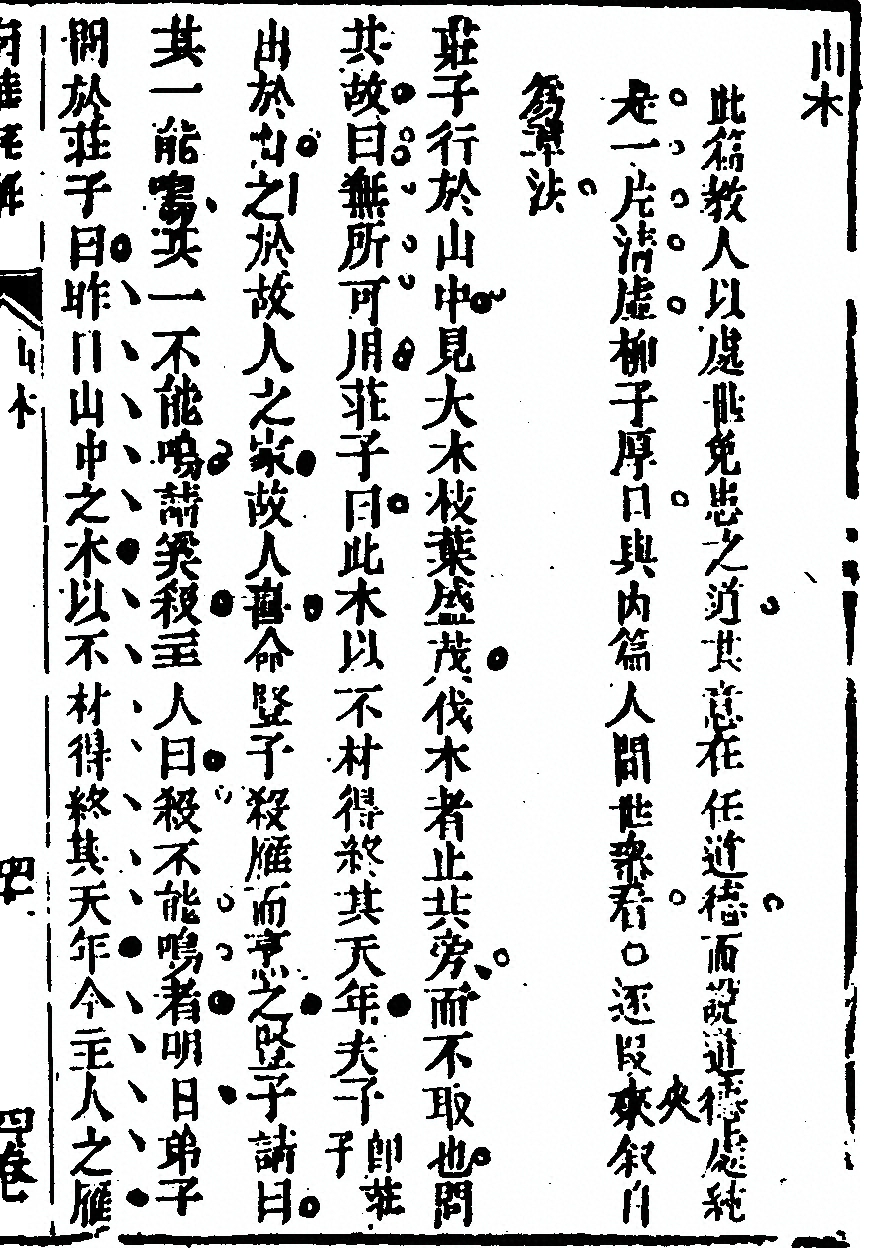 山木
此篇教人以處世免患之道其意在任道德而說道德處純
是一片清虛柳子厚曰與內篇人間世參看○逐段來叙自
夾
為章法
莊子行於山中見大木枝葉盛茂伐木者止其旁而不取也問
其故曰無所可用莊子曰此木以不材得終其天年夫子即莊子
出於山之於故人之家故人喜命豎子殺雁而烹之豎子請曰
其一能鳴其一不能鳴請奚殺主人曰殺不能鳴者明日弟子
問於莊子曰昨日山中之木以不材得終其天年今主人之雁
山木